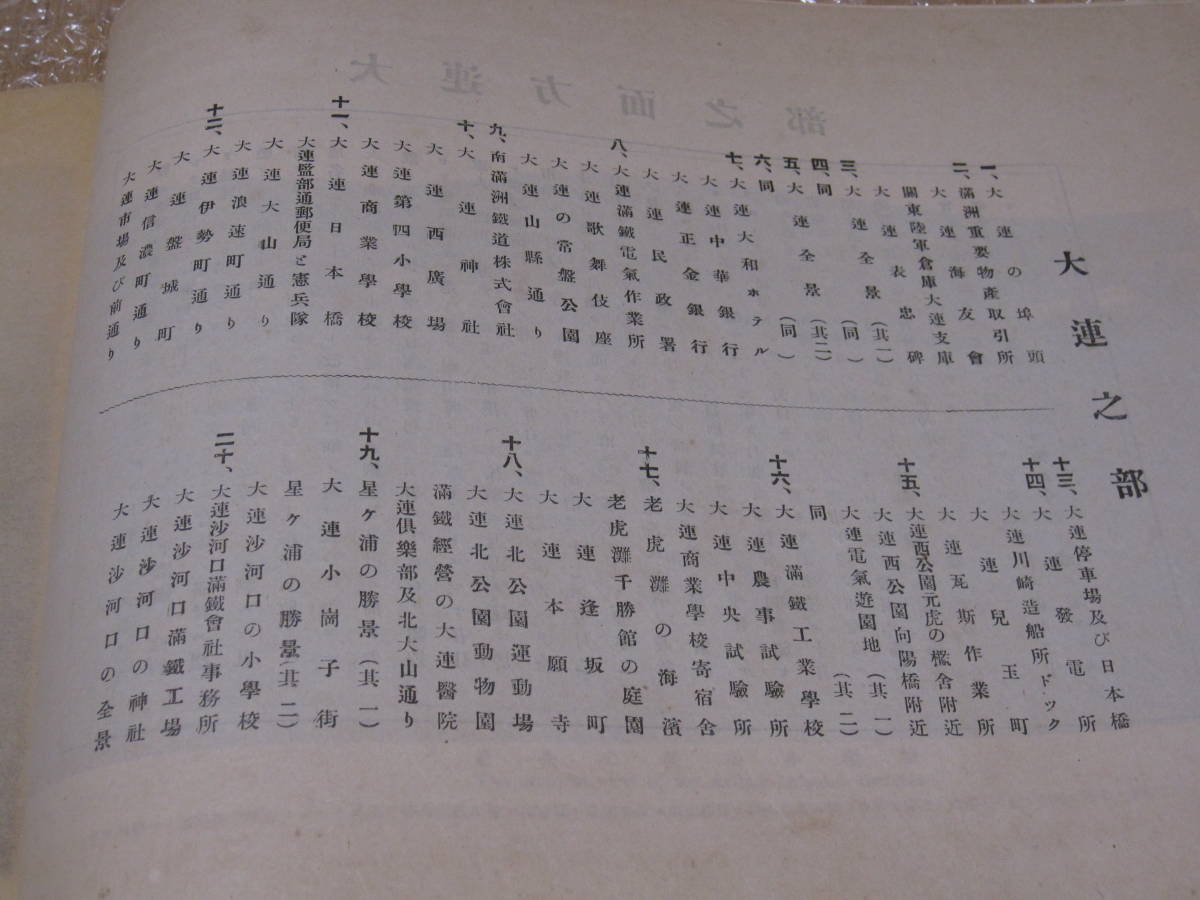 大連之部
一、大連の埠頭
滿洲重要物產取引所
二、滿洲海友會
大連海友會
關東陸軍倉庫大連支庫
大連表忠碑
三、大連全景(其一)
四、同(同)
五、大連全景(其二)
六、同(同)
七、大連大和ホテル
大連中華銀行
大連正金銀行
大連民政署
八、大連滿鐵電氣作業所
大連歌舞伎座
大連の常盤公園
大連山縣通り
九、南滿洲鐵道株式會社
十、大連神社
大連西廣場
大連第四小學校
大連商業學校
十一、大連日本橋
大連監部通郵便局と憲兵隊
大連大山通り
大連浪速町通り
十二、大連伊勢町通り
大連盤城町
大連信濃町通り
大連市場及び前通り
十三、大連停車場及び日本橋
大連發電所
十四、大連川崎造船所ドック
大連兒玉町
大連瓦斯作業所
十五、大連西公園元虎の檻舍附近
大連西公園向陽橋附近
大連電氣遊園地(其一)
同(其二)
十六、大連滿鐵工業學校
大連農事試驗所
大連中央試驗所
大連商業學校寄宿舍
十七、老虎灘の海濱
老虎灘千勝館の庭園
大連逢坂町
大連本願寺
十八、大連北公園運動場
大連北公園動物園
滿鐵經營の大連醫院
大連俱樂部及北大山通り
十九、星ケ浦の勝景(其一)
大連小崗子街
星ケ浦の勝景(其二)
大連沙河口の小學校
二十、大連沙河口滿鐵會社事務所
大連沙河口滿鐵工場
大連沙河口の神社
大連沙河口の全景
大連方面之部